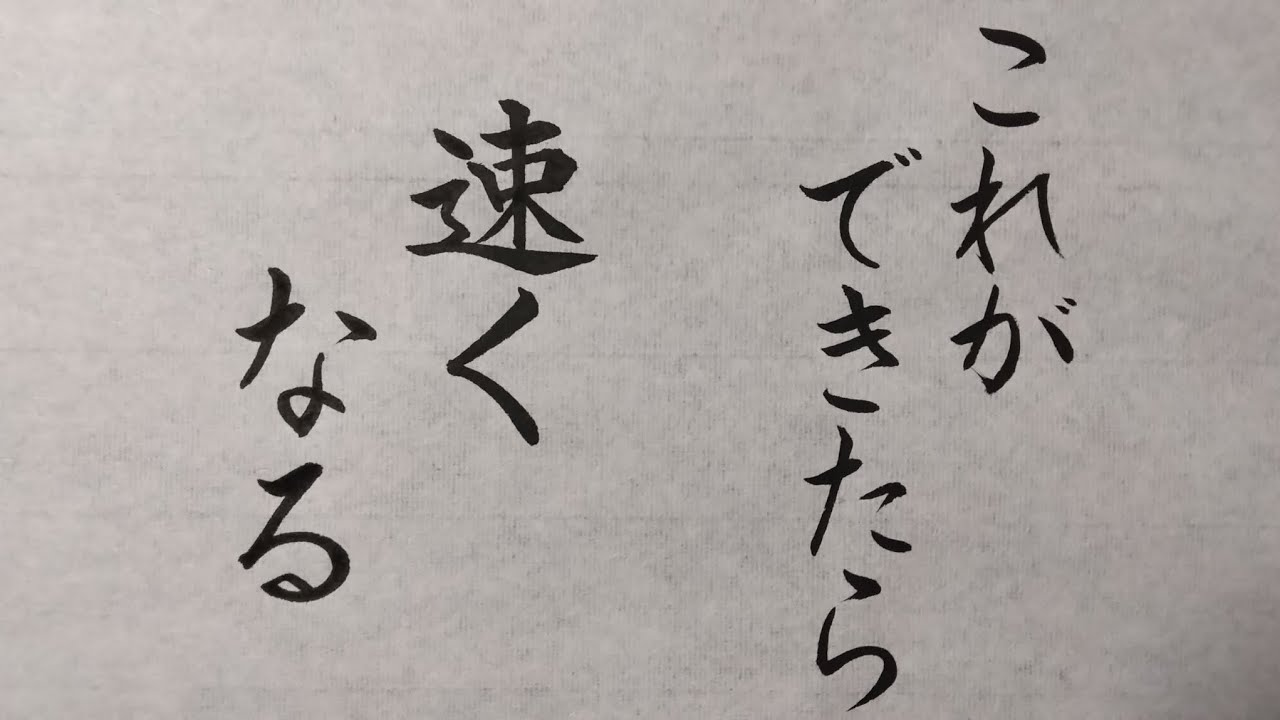 これが
できたら
速く
なる